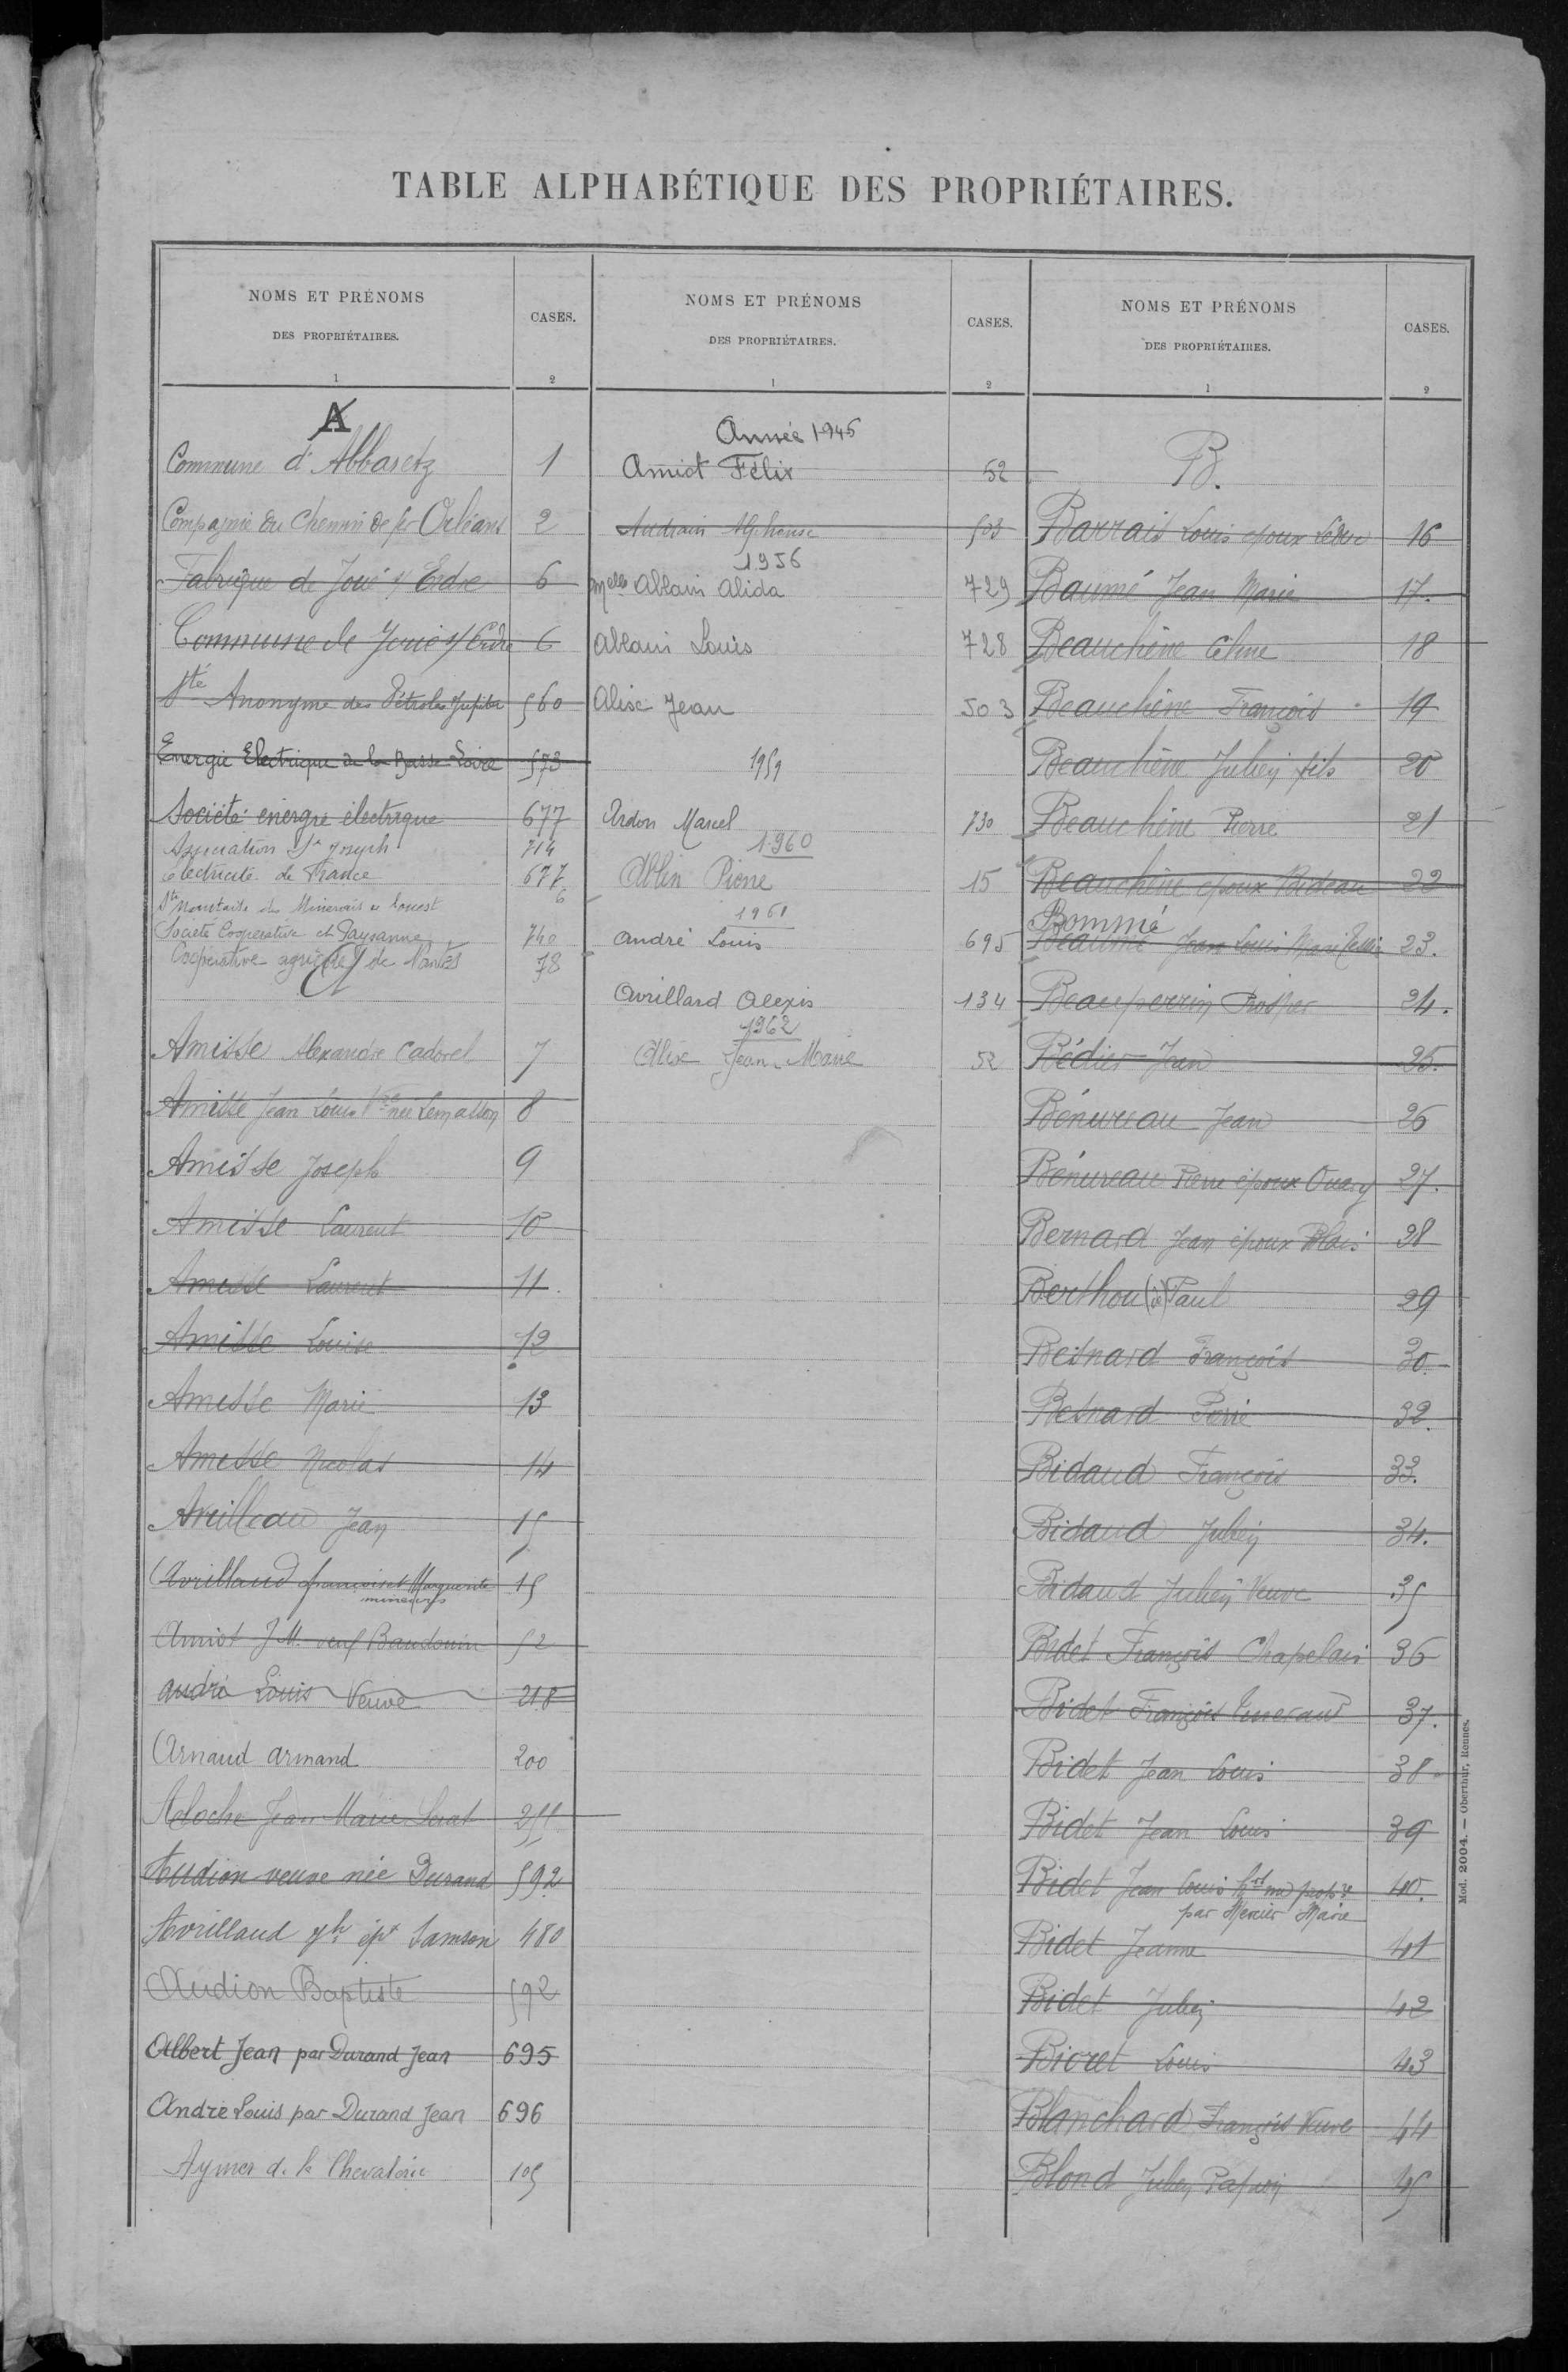 TABLE ALPHABÉTIQUE DES PROPRIÉTAIRES.
NOMS ET PRÉNOMS
DES PROPRIÉTAIRES.
CASES.
1
2
A
Commune d'Abbaretz 1
Compagnie du Chemin de fer Orléans 2
Fabrique de Joué s/ Erdre 6
Commune de Joué s/ Erdre 6
Sté Anonyme des Pétroles Jupiter 560
Energie Electrique de la Basse-Loire 573
Société énergie électrique 677
Association St Joseph 714
électricité de France 677
Sté des Minerais de l'ouest 6
Société Coopérative et Paysanne 740
Coopérative agricole de Nantes 78
A
Amisse Alexandre Cadorel 7
Amisse Jean Louis Vve née Lemasson 8
Amisse Joseph 9
Amisse Laurent 10
Amisse Laurent 11
Amisse Louise 12
Amisse Marie 13
Amisse Nicolas 14
Avilleau Jean 15
Avrillaud François et Marguerite 15
mineurs
Amiot J M. veuf Baudouin 52
André Louis Veuve 218
Arnaud armand 200
Aloche Jean-Marie 255
Audion veuve née Durand 592
Avrillaud Jh épx Samson 480
Audion Baptiste 592
Albert Jean par Durand Jean 695
André Louis par Durand Jean 696
Aymer de la Chevalerie 105
NOMS ET PRÉNOMS
DES PROPRIÉTAIRES.
CASES.
1
2
Année 1945
Amiot Félix 52
Audrain Alphonse 503
1956
Melle Allain Alida 729
Allain Louis 728
Alise Jean 503
1959
Ardon Marcel 730
1960
Ablin Pierre 15
1961
André Louis 695
Avrillard Alexis 134
1962
Alise Jean-Marie 52
NOMS ET PRÉNOMS
DES PROPRIÉTAIRES.
CASES.
1
2
B.
Barrais Louis époux 16
Baumé Jean Marie 17.
Beauchêne Céline 18
Beauchêne François 19
Beauchêne Julien fils 20
Beauchêne Pierre 21
Beauchêne époux Bideau 22
Bommé
Beaumé Jean Louis Marie 23.
Beauperrin Prosper 24.
Bédier Jean 25.
Bénureau Jean 26
Bénureau Pierre époux Ouary 27.
Bernard Jean époux Blais 28
Berthou (de) Paul 29
Besnard François 30.
Besnard Pierre 32.
Bidaud François 33.
Bidaud Julien 34.
Bidaud Julien Veuve 35
Bidet François Chapelain 36
Bidet François 37.
Bidet Jean Louis 38
Bidet Jean Louis 39
Bidet Jean Louis 40.
par Mercier Marie
Bidet Jeanne 41
Bidet Julien 42
Bioret Louis 43
Blanchard François Veuve 44
Blond Julien Papin 45
Mod. 2004. — Oberthür, Rennes.